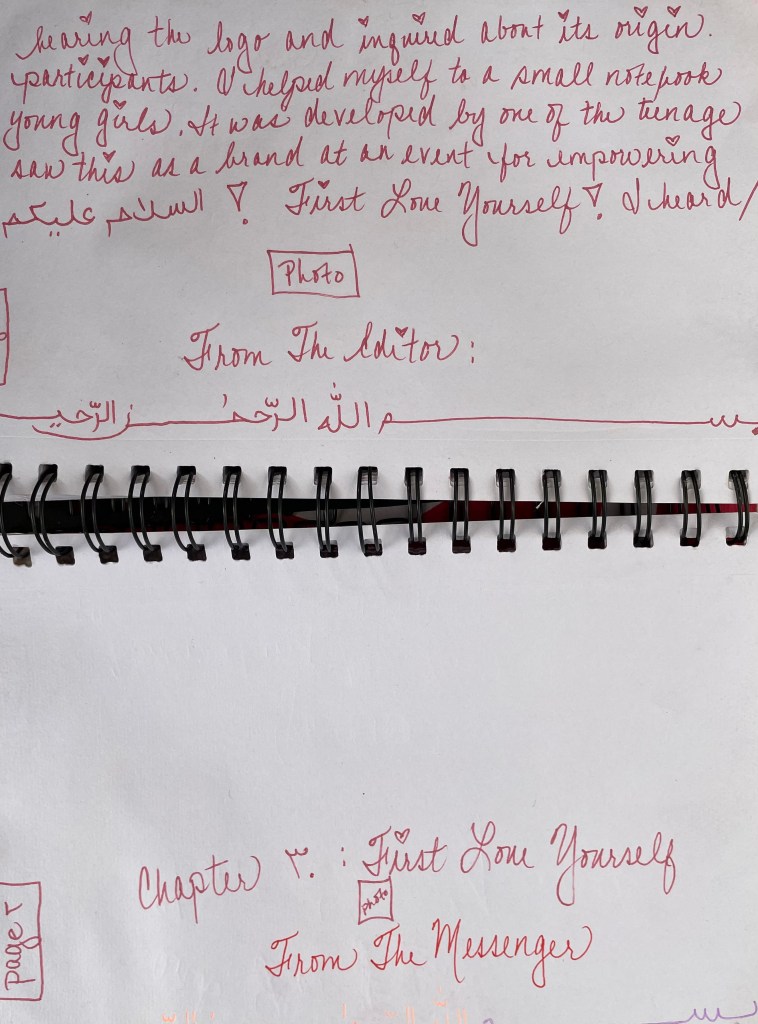 bearing the logo and inquired about its origin.
participants. I helped myself to a small notebook
young girls. It was developed by one of the teenage
saw this as a brand at an event for empowering
السلام عليكم ! First Love Yourself! I heard/
Photo
From The Editor:
بسم الله الرّحمٰن الرّحيم
Chapter ٣. : First Love Yourself
photo
From The Messenger
page ٢